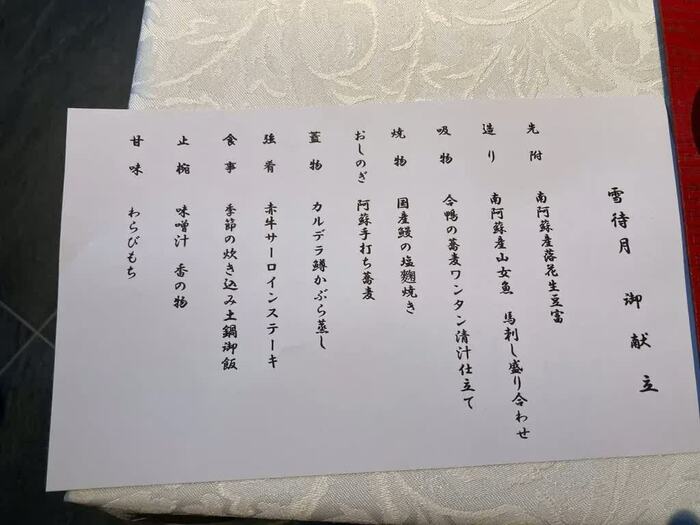 雪待月　御献立
先附　南阿蘇産落花生豆富
造り　南阿蘇産山女魚　馬刺し盛り合わせ
吸物　合鴨の蕎麦ワンタン清汁仕立て
焼物　国産鰻の塩麹焼き
おしのぎ　阿蘇手打ち蕎麦
蓋物　カルデラ鱒かぶら蒸し
強肴　赤牛サーロインステーキ
食事　季節の炊き込み土鍋御飯
止椀　味噌汁　香の物
甘味　わらびもち